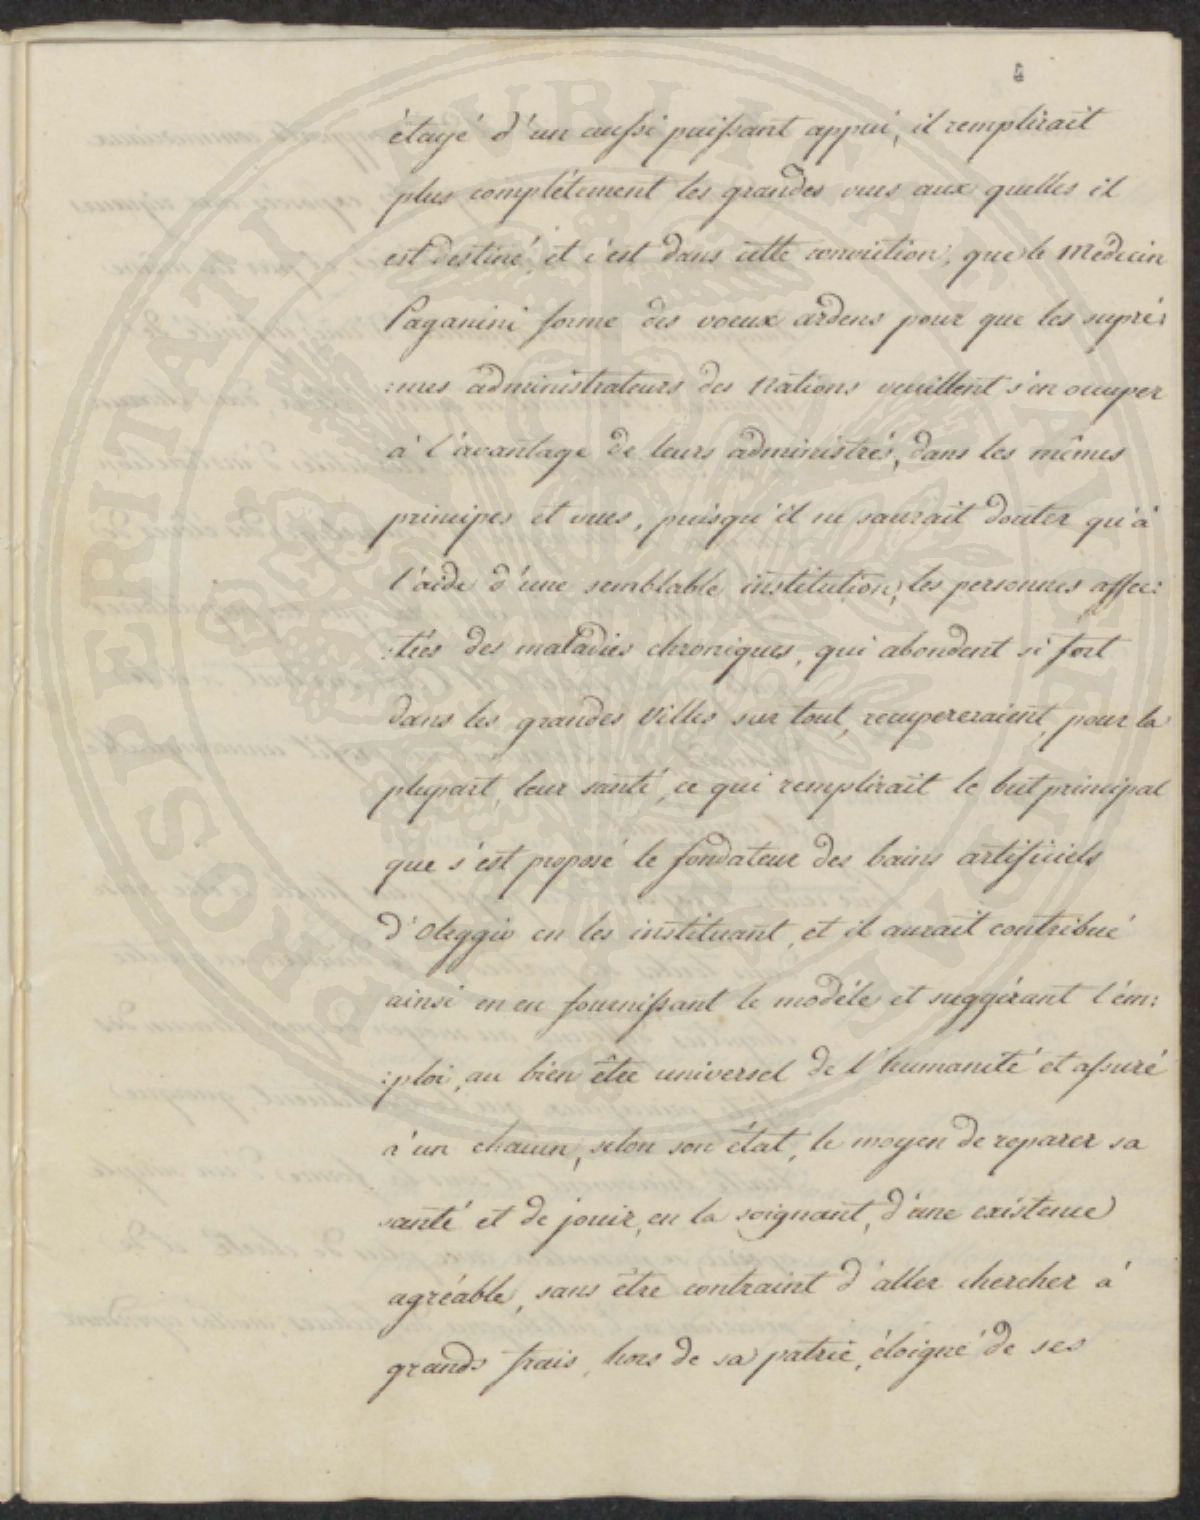 4
étayé d'un aussi puissant appui, il remplirait
plus complétement les grandes vues aux quelles il
est destiné, et c'est dans cette conviction, que le Médecin
Paganini forme des voeux ardens pour que les suprê:
:mes administrateurs des Nations veuillent s'en occuper
à l'avantage de leurs administrés, dans les mêmes
principes et vues, puisqu'il ne saurait douter qu'à
l'aide d'une semblable institution, les personnes affec:
:tées des maladies chroniques, qui abondent si fort
dans les grandes Villes sur tout, recupereraient, pour la
plupart, leur santé, ce qui remplirait le but principal
que s'est proposé le fondateur des bains artificiels
d'Oleggio en les instituant, et il aurait contribué
ainsi en en fournissant le modéle et suggérant l'em:
:ploi, au bien être universel de l'humanité et assuré
à un chacun, selon son état, le moyen de reparer sa
santé et de jouir, en la soignant, d'une existence
agréable, sans être contraint d'aller chercher à
grands frais, hors de sa patrie, éloigné de ses
PROSPERITATI PUBLICAE AUGENDAE